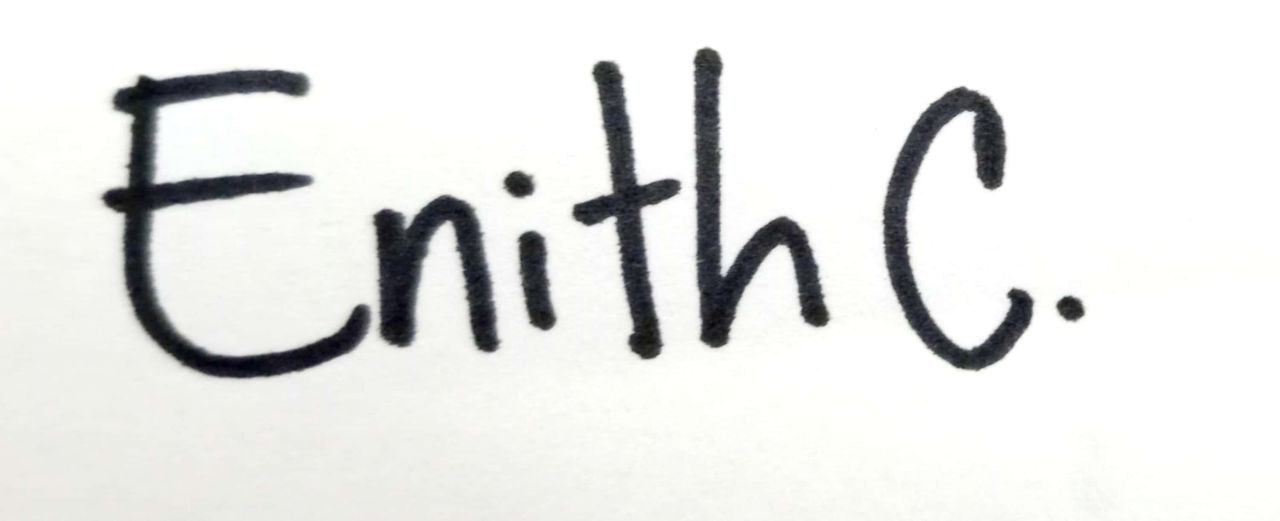 Enith C.